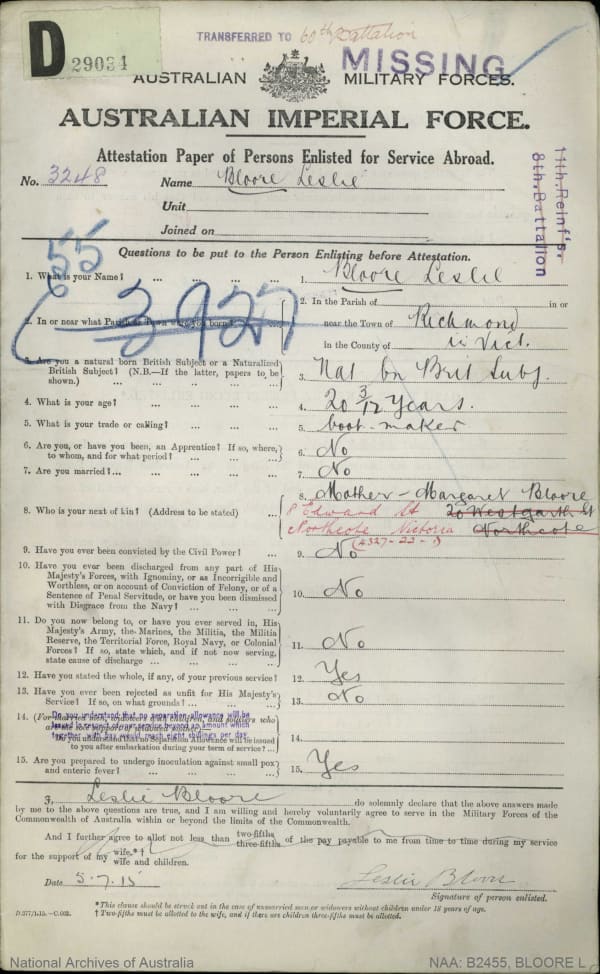 D 29034
TRANSFERRED TO 60th Battalion
MISSING
AUSTRALIAN MILITARY FORCES.
AUSTRALIAN IMPERIAL FORCE.
Attestation Paper of Persons Enlisted for Service Abroad.
No. 3248 Name Bloore Leslie
Unit
Joined on
11th Reinf's.
8th. Battalion
Questions to be put to the Person Enlisting before Attestation.
55
3927
1. What is your Name? ... ... ... ... 1. Bloore Leslie
2. In or near what Parish or Town were you born? 2. In the Parish of in or
near the Town of Richmond
in the County of in Vict.
3. Are you a natural born British Subject or a Naturalized
British Subject? (N.B.—If the latter, papers to be
shown.) ... ... ... ... ... 3. Nat bn Brit Subj.
4. What is your age? ... ... ... ... 4. 20 3/12 Years.
5. What is your trade or calling? ... ... ... 5. boot-maker
6. Are you, or have you been, an Apprentice? If so, where,
to whom, and for what period? ... ... ... 6. No
7. Are you married? ... ... ... ... 7. No
8. Who is your next of kin? (Address to be stated) ... 8. Mother - Margaret Bloore
8 Edward St 20 Westgarth St
Northcote Victoria Northcote
9. Have you ever been convicted by the Civil Power? ... 9. No
10. Have you ever been discharged from any part of His
Majesty's Forces, with Ignominy, or as Incorrigible and
Worthless, or on account of Conviction of Felony, or of a
Sentence of Penal Servitude, or have you been dismissed
with Disgrace from the Navy? ... ... ... 10. No
11. Do you now belong to, or have you ever served in, His
Majesty's Army, the Marines, the Militia, the Militia
Reserve, the Territorial Force, Royal Navy, or Colonial
Forces? If so, state which, and if not now serving,
state cause of discharge ... ... ... ... 11. No
12. Have you stated the whole, if any, of your previous service? 12. Yes
13. Have you ever been rejected as unfit for His Majesty's
Service? If so, on what grounds? ... ... ... 13. No
Do you understand that no separation allowance will be
issued in respect of your service beyond an amount which
together with pay would reach eight shillings per day.
14. (For married men, widowers with children, and soldiers who
are the sole support of widowed mother.—
Do you understand that no Separation Allowance will be issued
to you after embarkation during your term of service? ... 14.
15. Are you prepared to undergo inoculation against small pox
and enteric fever? ... ... ... ... 15. Yes
I, Leslie Bloore do solemnly declare that the above answers made
by me to the above questions are true, and I am willing and hereby voluntarily agree to serve in the Military Forces of the
Commonwealth of Australia within or beyond the limits of the Commonwealth.
And I further agree to allot not less than two-fifths three-fifths of the pay payable to me from time to time during my service
for the support of my wife.*†
wife and children.
Date 5.7.15 Leslie Bloore
Signature of person enlisted.
*This clause should be struck out in the case of unmarried men or widowers without children under 18 years of age.
D.277/1.15.—C.603. † Two-fifths must be allotted to the wife, and if there are children three-fifths must be allotted.
National Archives of Australia NAA: B2455, BLOORE L